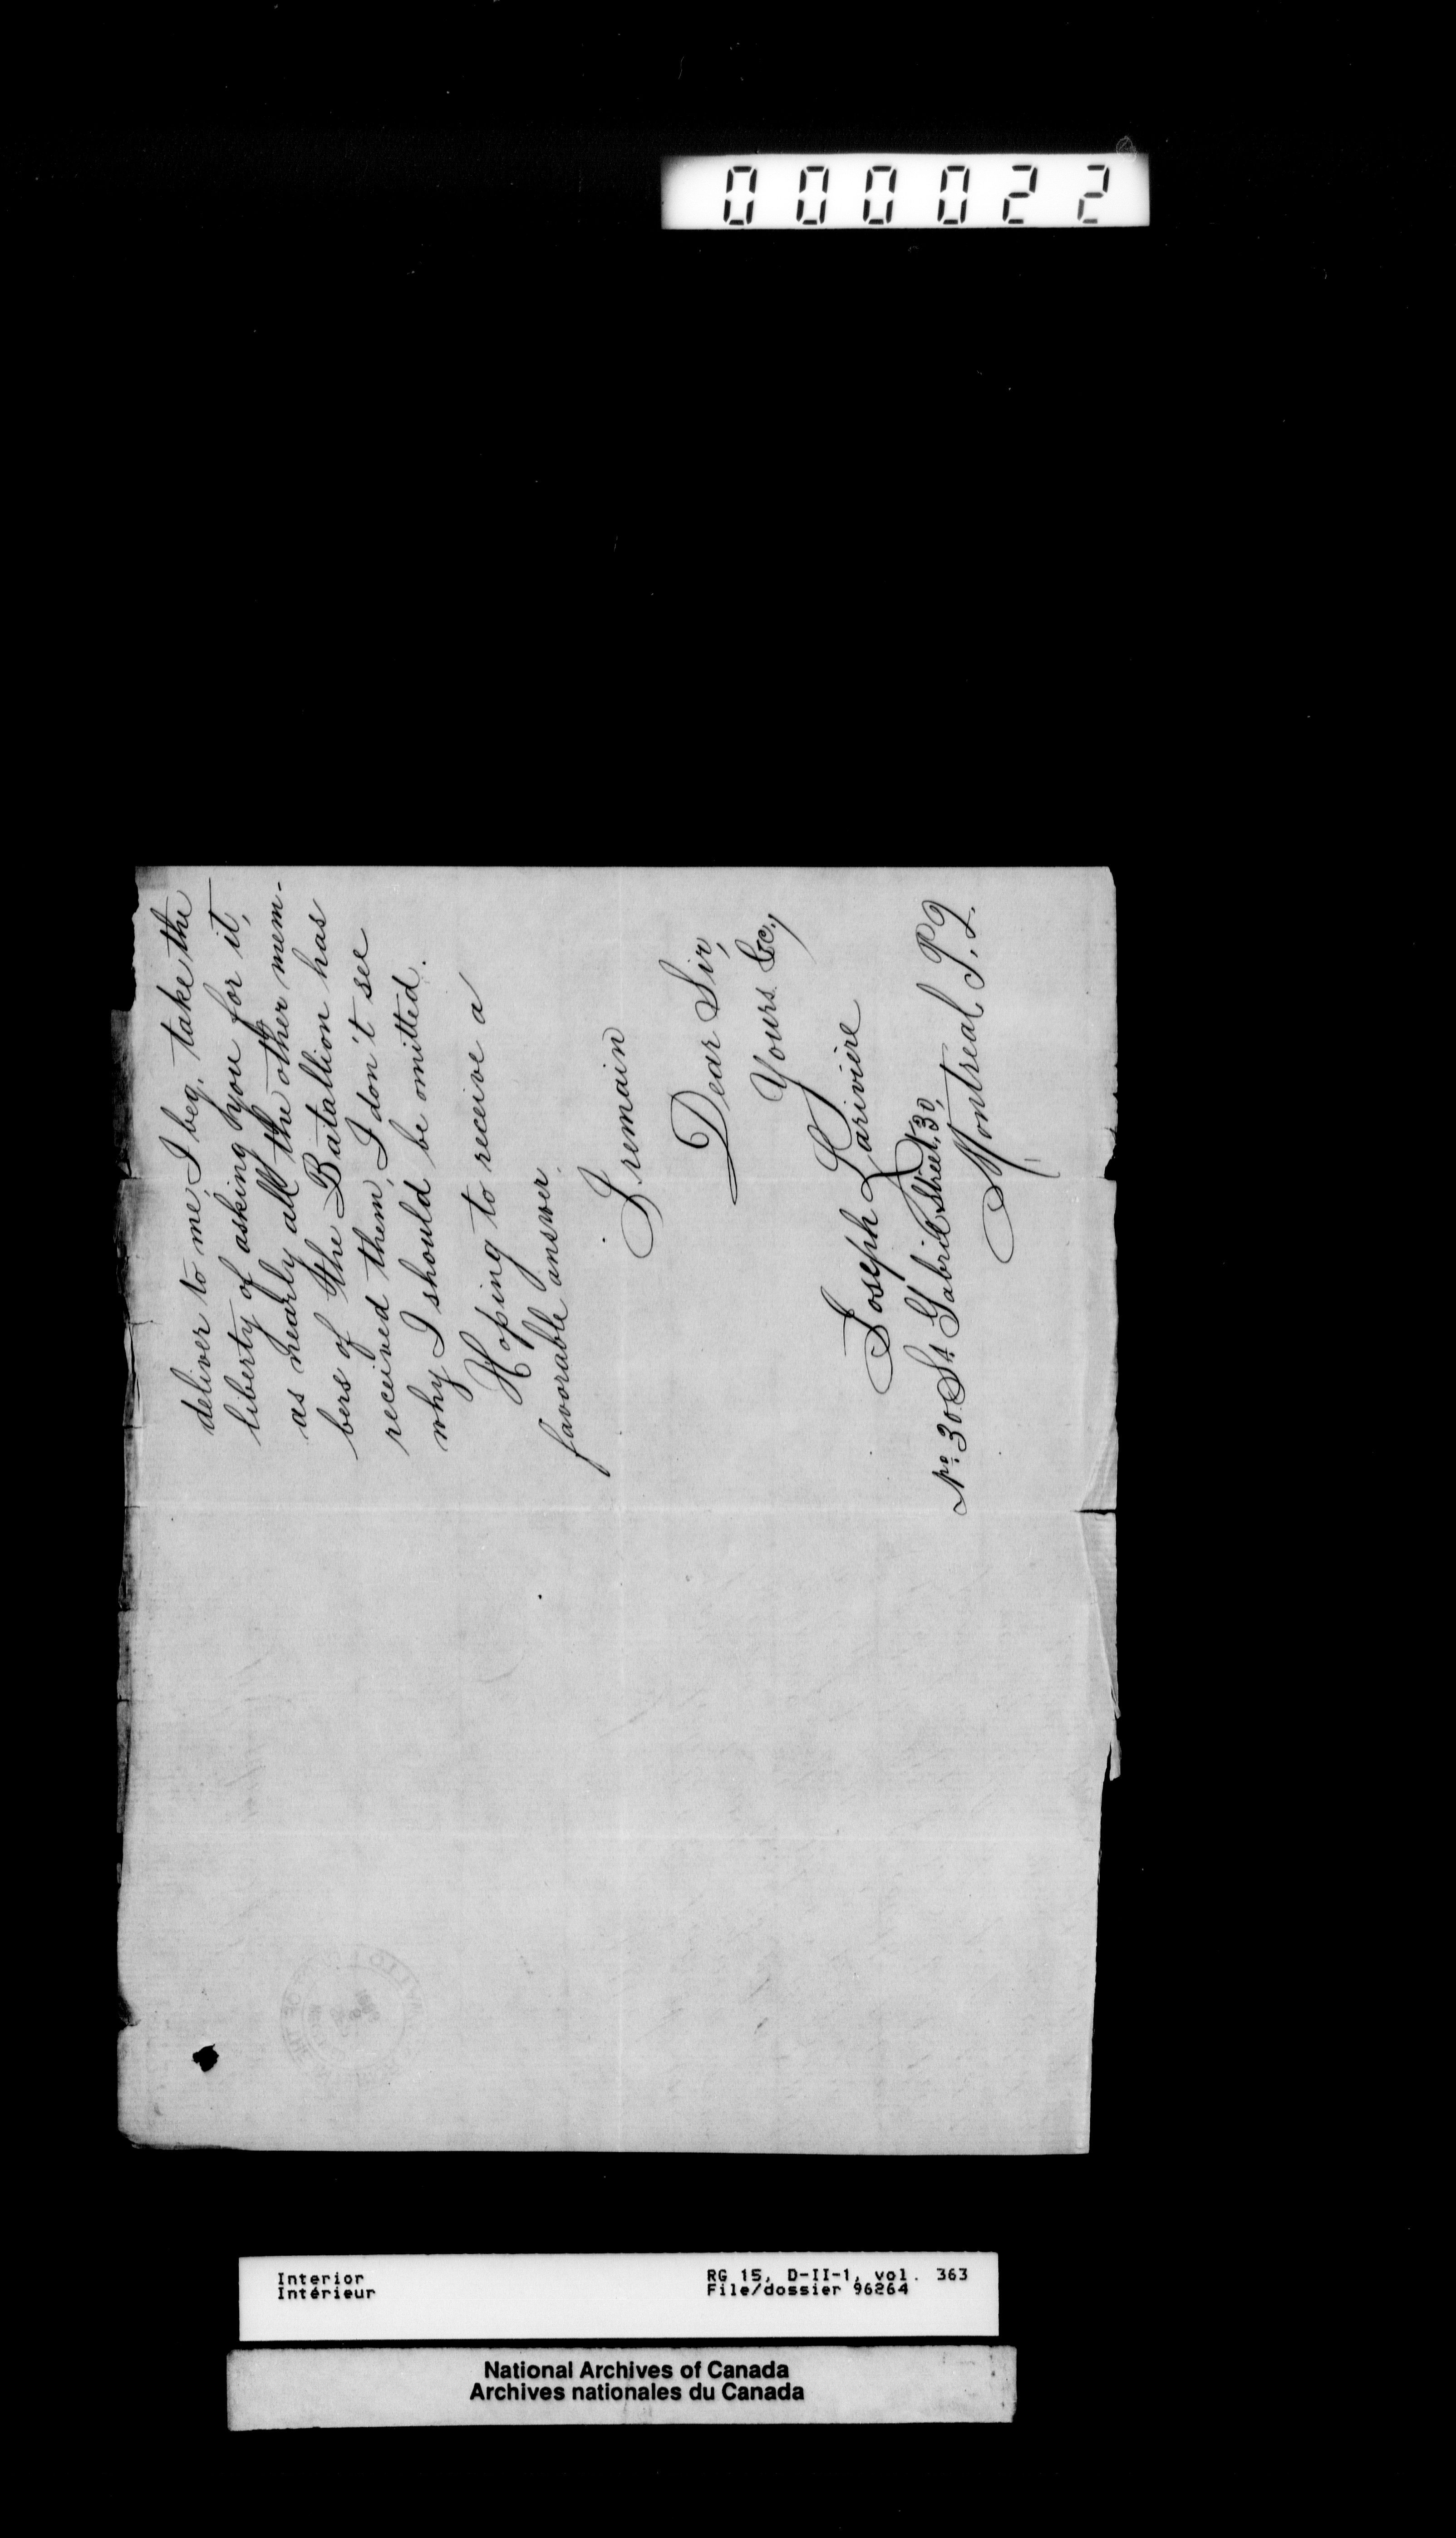 000022
deliver to me, I beg, take the
liberty of asking you for it,
as nearly all the other mem-
bers of the Batallion has
received them, I don't see
why I should be omitted.
Hoping to receive a
favorable answer.
I remain
Dear Sir,
Yours &c.,
Joseph Larivière
No. 30 St. Gabriel Street, 30,
Montreal P.Q.
Interior
Intérieur
RG 15, D-II-1, vol. 363
File/dossier 96264
National Archives of Canada
Archives nationales du Canada